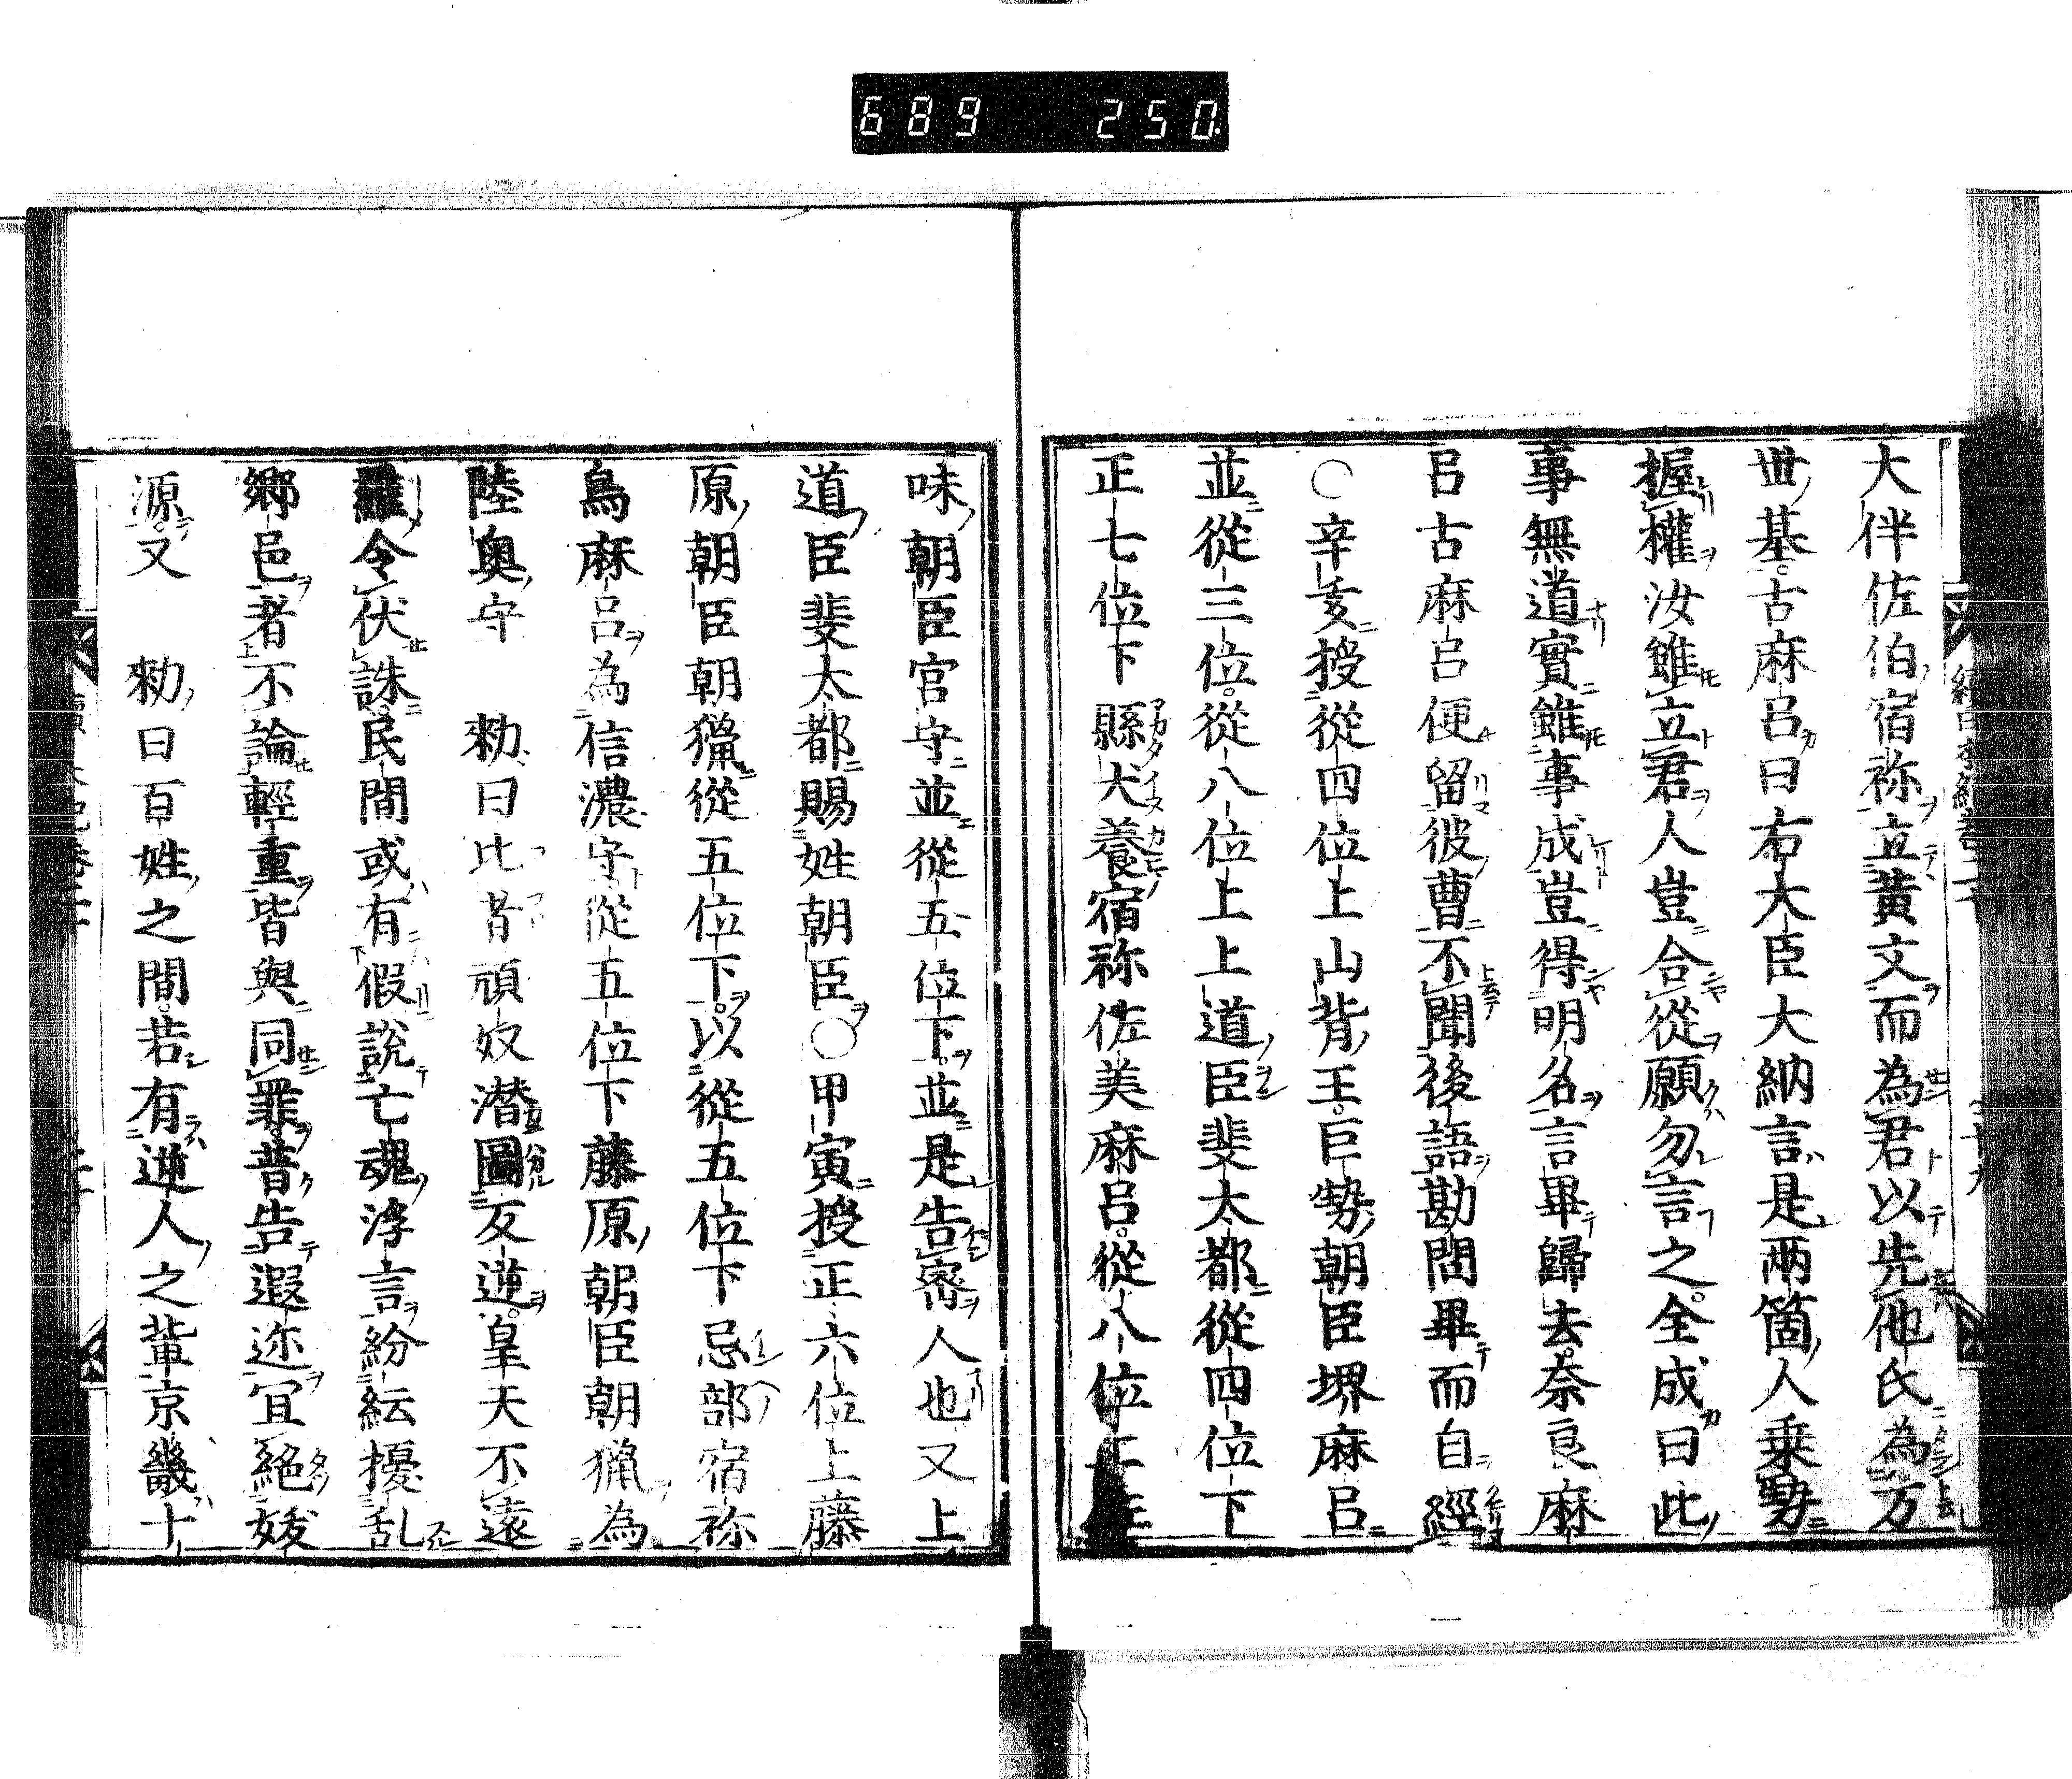 689 250
大伴佐伯宿祢立黄文而為君以先他氏為万
世基古麻呂曰右大臣大納言是兩箇人乗勢
握權汝雖立君人豈合從願勿言之全成曰此
事無道實雖事成豈得明名言畢歸去奈良麻
呂古麻呂便留彼曹不聞後語勘問畢而自經
○辛亥授從四位上山背王巨勢朝臣堺麻呂
並從三位從八位上上道臣斐太都從四位下
正七位下縣犬養宿祢佐美麻呂從八位上上
味朝臣宮守並從五位下並是告密人也又上
道臣斐太都賜姓朝臣○甲寅授正六位上藤
原朝臣朝獵從五位下以從五位下忌部宿祢
鳥麻呂為信濃守從五位下藤原朝臣朝獵為
陸奥守　勑曰比者頑奴潜圖反逆皇天不遠
羅令伏誅民間或有假說亡魂浮言紛紜擾乱
郷邑者不論輕重皆與同罪普告遐迩冝絕妖
源又　勑曰百姓之間若有逆人之輩京畿十